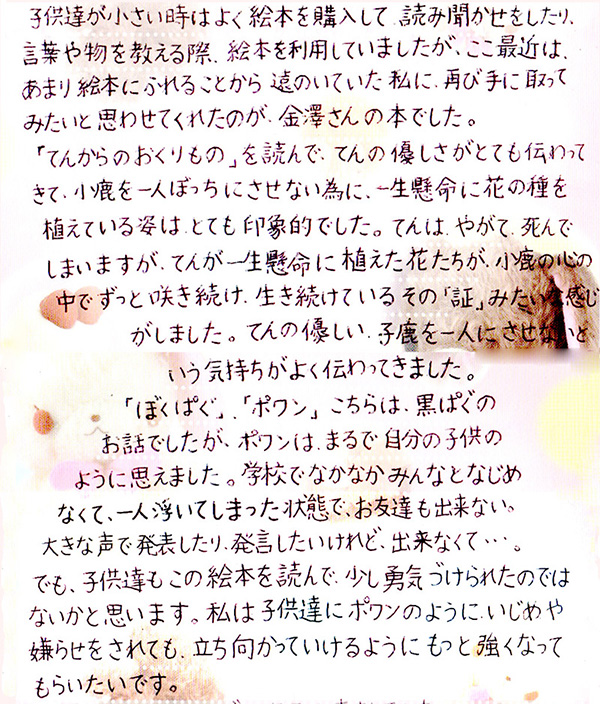 子供達が小さい時はよく絵本を購入して、読み聞かせをしたり、
言葉や物を教える際、絵本を利用していましたが、ここ最近は、
あまり絵本にふれることから遠のいていた私に、再び手に取って
みたいと思わせてくれたのが、金澤さんの本でした。
「てんからのおくりもの」を読んで、てんの優しさがとても伝わって
きて、小鹿を一人ぼっちにさせない為に、一生懸命に花の種を
植えている姿は、とても印象的でした。てんは、やがて、死んで
しまいますが、てんが一生懸命に植えた花たちが、小鹿の心の
中でずっと咲き続け、生き続けているその「証」みたいな感じ
がしました。てんの優しい、子鹿を一人にさせないと
いう気持ちがよく伝わってきました。
「ぼくぱぐ」、「ポワン」こちらは、黒ぱぐの
お話でしたが、ポワンは、まるで自分の子供の
ように思えました。学校でなかなかみんなとなじめ
なくて、一人浮いてしまった状態で、お友達も出来ない。
大きな声で発表したり、発言したいけれど、出来なくて・・・。
でも、子供達もこの絵本を読んで、少し勇気づけられたのでは
ないかと思います。私は子供達にポワンのように、いじめや
嫌らせをされても、立ち向かっていけるようにもっと強くなって
もらいたいです。